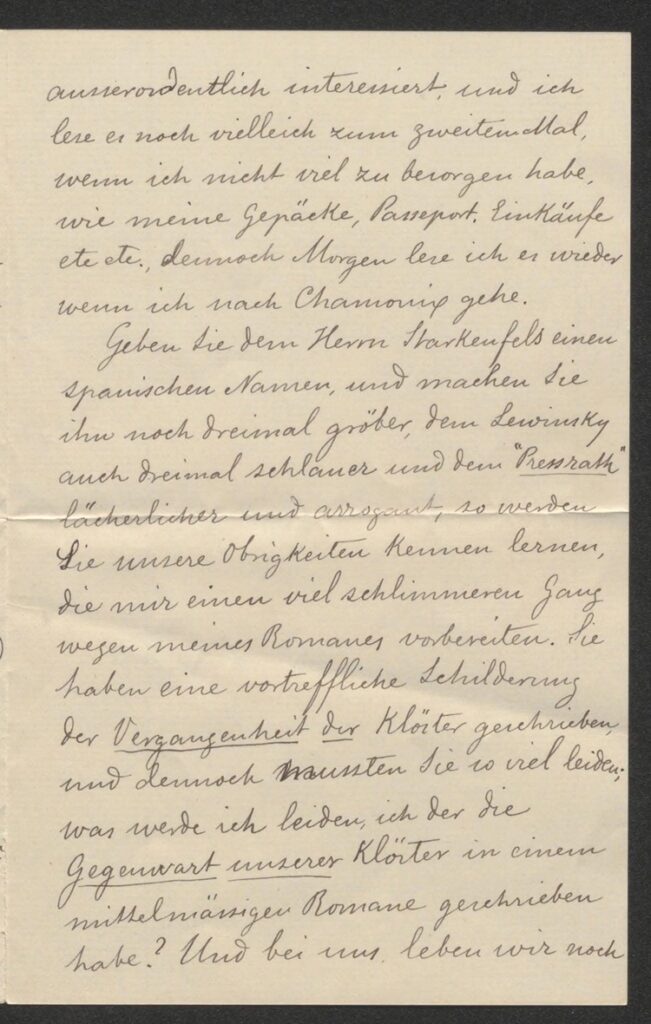 ausserordentlich interessiert, und ich
lese es noch vielleich zum zweitem Mal,
wenn ich nicht viel zu besorgen habe,
wie meine Gepäcke, Passeport. Einkäufe
etc etc., dennoch Morgen lese ich es wieder
wenn ich nach Chamonix gehe.
Geben Sie dem Herrn Starkenfels einen
spanischen Namen, und machen Sie
ihn noch dreimal gröber, dem Lewinsky
auch dreimal schlauer und dem "Pressrath"
lächerlicher und arrogant, so werden
Sie unsere Obrigkeiten kennen lernen,
die mir einen viel schlimmeren Gang
wegen meines Romanes vorbereiten. Sie
haben eine vortreffliche Schilderung
der Vergangenheit der Klöster geschrieben,
und dennoch mussten Sie so viel leiden;
was werde ich leiden, ich der die
Gegenwart unserer Klöster in einem
mittelmässigen Romane geschrieben
habe? Und bei uns, leben wir noch